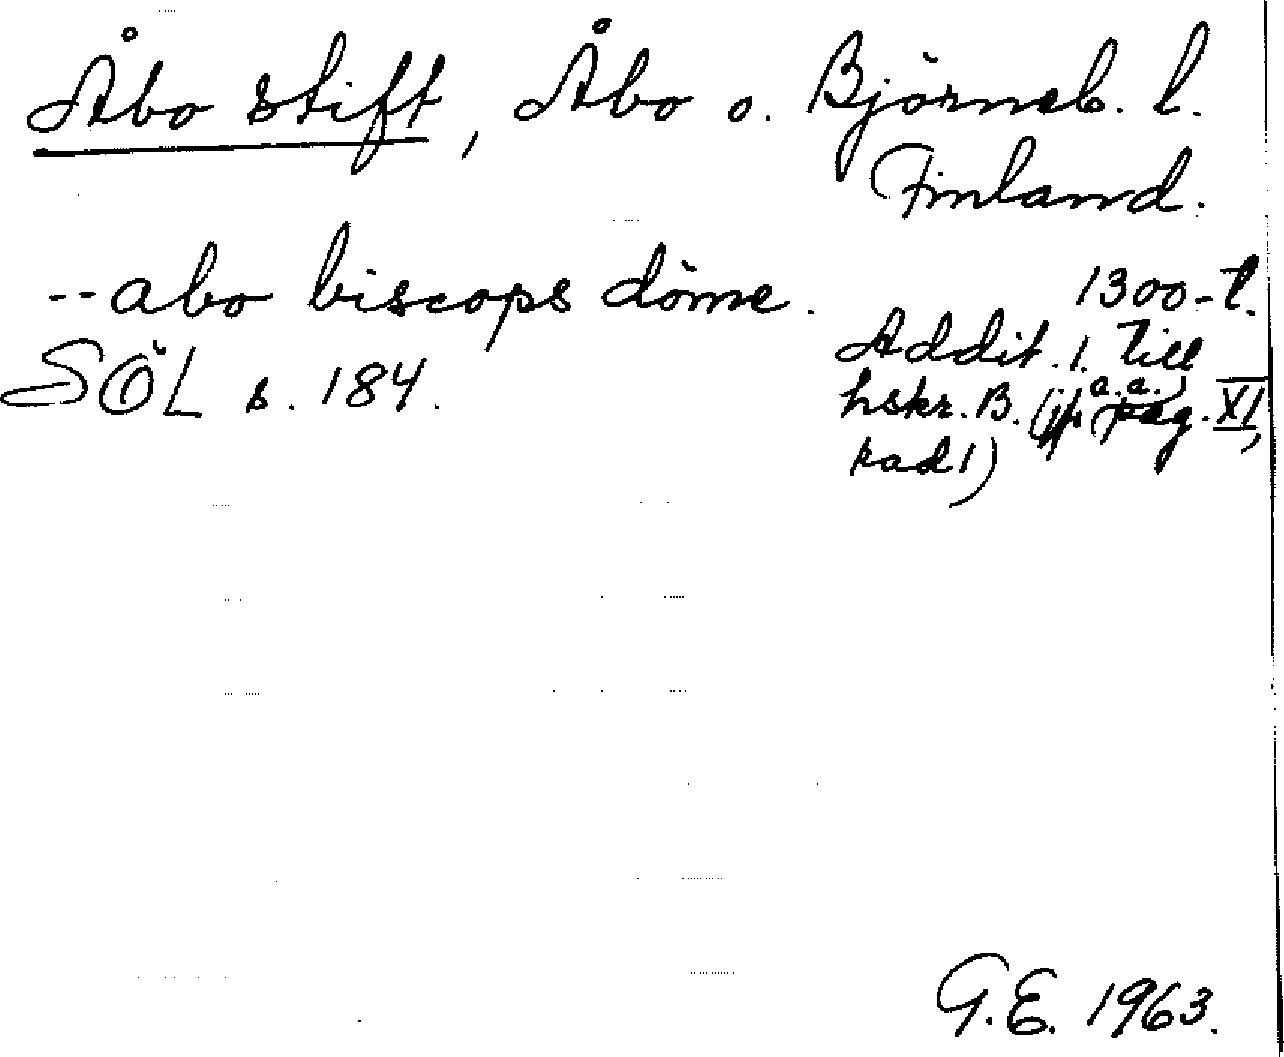 Åbo stift, Åbo o. Björneb. l.
Finland.
--abo biscops döme. 1300-t.
SÖL s. 184. Addit. 1. till
hskr. B. (jfr a.a.) pag. XI,
rad 1)
G.E. 1963.